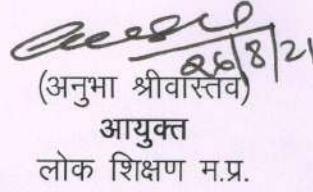 26/8/21
(अनुभा श्रीवास्तव)
आयुक्त
लोक शिक्षण म.प्र.